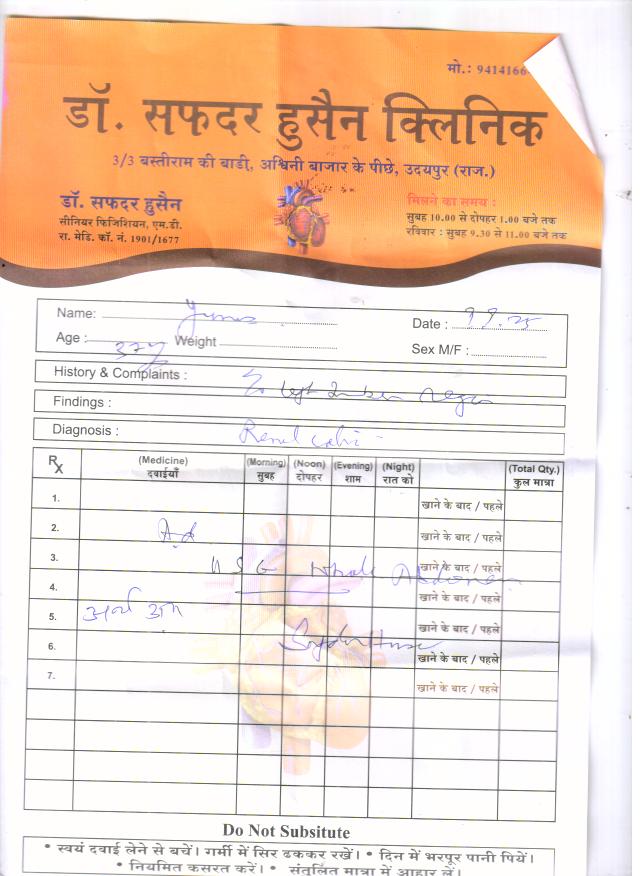 मो.: 9414166
डॉ. सफदर हुसैन क्लिनिक
3/3 बस्तीराम की बाडी, अश्विनी बाजार के पीछे, उदयपुर (राज.)
डॉ. सफदर हुसैन
सीनियर फिजिशियन, एम.डी.
रा. मेडि. कॉ. नं. 1901/1677
मिलने का समय :
सुबह 10.00 से दोपहर 1.00 बजे तक
रविवार : सुबह 9.30 से 11.00 बजे तक
Name:
Date : 9.9.25
Age : 37y Weight
Sex M/F :
History & Complaints : left
Findings :
Diagnosis : Renal
Rx (Medicine) (Morning) (Noon) (Evening) (Night) (Total Qty.)
दवाईयाँ सुबह दोपहर शाम रात को कुल मात्रा
1. खाने के बाद / पहले
2. Ad खाने के बाद / पहले
3. USG whole Abdomen खाने के बाद / पहले
4. खाने के बाद / पहले
5. खाने के बाद / पहले
6. खाने के बाद / पहले
7. खाने के बाद / पहले
Do Not Subsitute
• स्वयं दवाई लेने से बचें। गर्मी में सिर ढककर रखें। • दिन में भरपूर पानी पियें।
• नियमित कसरत करें। • संतुलित मात्रा में आहार लें।